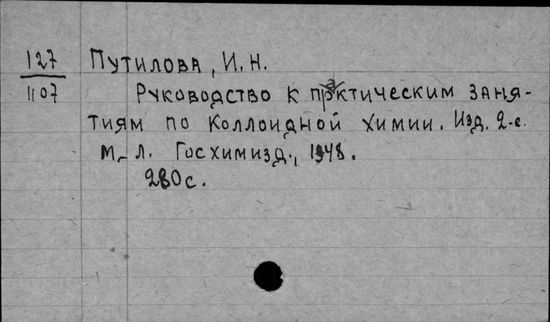 127
1107
Путилова, И.Н.
Руководство к практическим заня-
тиям по коллоидной химии. Изд. 2-е.
М.-Л. Госхимизд., 1948.
280с.